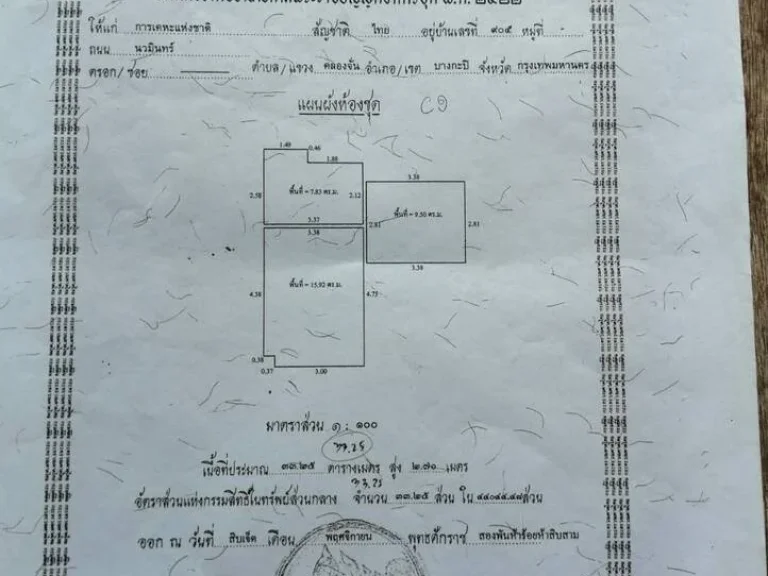 ให้แก่ การเคหะแห่งชาติ สัญชาติ ไทย อยู่บ้านเลขที่ ๙๐๕ หมู่ที่
ถนน นวมินทร์
ตรอก/ซอย ตำบล/แขวง คลองจั่น อำเภอ/เขต บางกะปิ จังหวัด กรุงเทพมหานคร
แผนผังห้องชุด C9
1.49 0.46
1.88
3.38
2.58 พื้นที่ = 7.83 ตร.ม. 2.12
พื้นที่ = 9.50 ตร.ม.
3.37 2.81 2.81
3.38
3.38
พื้นที่ = 15.92 ตร.ม.
4.38 4.75
0.38
0.37 3.00
มาตราส่วน ๑ : ๑๐๐
33.25
เนื้อที่ประมาณ ๓๓.๒๕ ตารางเมตร สูง ๒.๗๐ เมตร
33.25
อัตราส่วนแห่งกรรมสิทธิ์ในทรัพย์ส่วนกลาง จำนวน ๓๓.๒๕ ส่วน ใน ส่วน
ออก ณ วันที่ สิบเจ็ด เดือน พฤศจิกายน พุทธศักราช สองพันห้าร้อยห้าสิบสาม